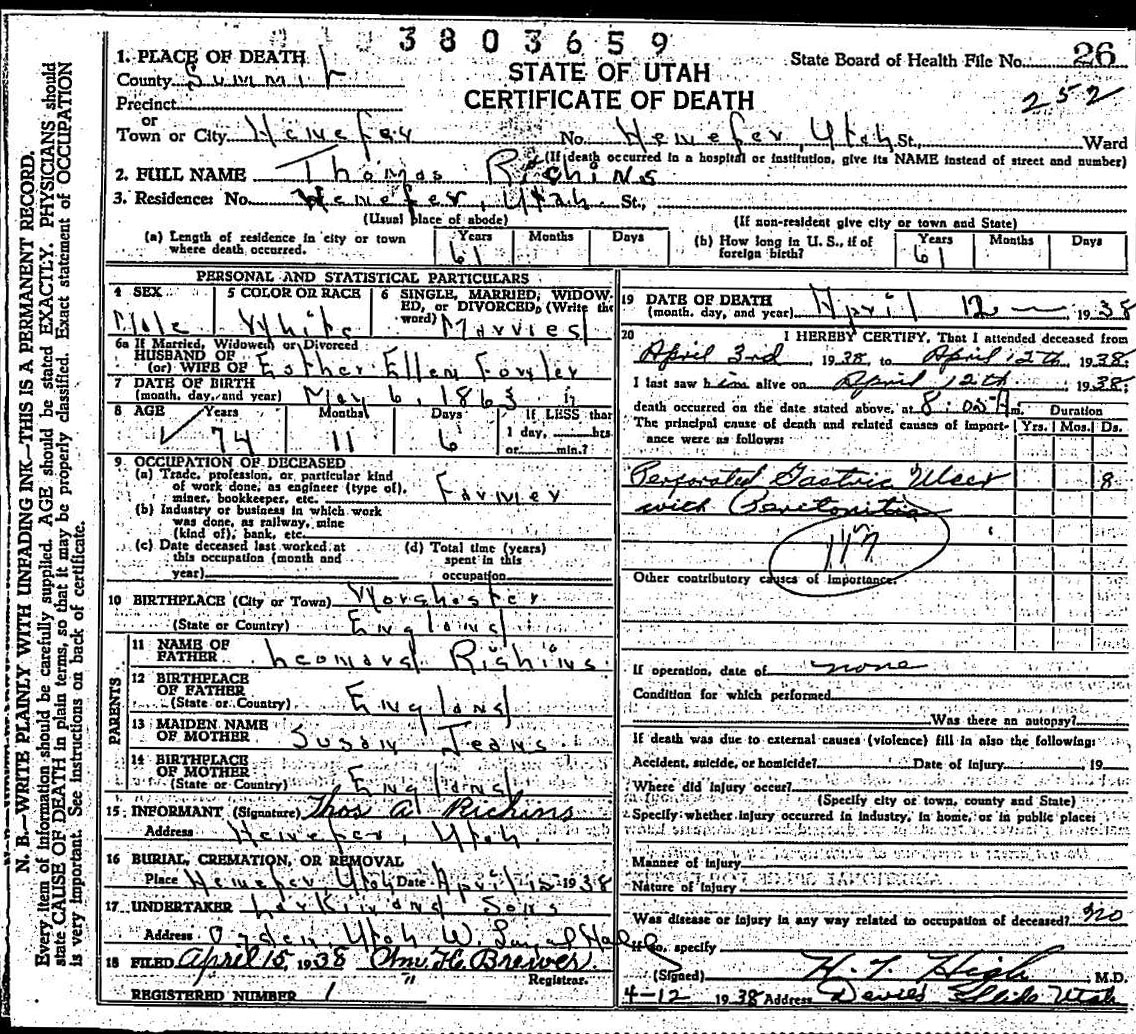 3803659
1. PLACE OF DEATH
State Board of Health File No. 26
County Summit
STATE OF UTAH
252
Precinct
CERTIFICATE OF DEATH
or
Town or City Henefer No. Henefer, Utah St., Ward
(If death occurred in a hospital or institution, give its NAME instead of street and number)
2. FULL NAME Thomas Richins
3. Residence: No. Henefer, Utah St.,
(Usual place of abode) (If non-resident give city or town and State)
(a) Length of residence in city or town where death occurred. Years 61 Months Days
(b) How long in U. S., if of foreign birth? Years 61 Months Days
PERSONAL AND STATISTICAL PARTICULARS
4 SEX Male
5 COLOR OR RACE White
6 SINGLE, MARRIED, WIDOWED, OR DIVORCED, (Write the word) Married
6a If Married, Widowed or Divorced
HUSBAND OF
(or) WIFE OF Esther Ellen Fowler
7 DATE OF BIRTH
(month, day, and year) May 6, 1863
8 AGE Years Months Days If LESS than
74 11 6 1 day, hrs
or min.?
9 OCCUPATION OF DECEASED
(a) Trade, profession, or particular kind
of work done, as engineer (type of),
miner, bookkeeper, etc. Farmer
(b) Industry or business in which work
was done, as railway, mine
(kind of), bank, etc.
(c) Date deceased last worked at
this occupation (month and
year)
(d) Total time (years)
spent in this
occupation
10 BIRTHPLACE (City or Town) Worchester
(State or Country) England
PARENTS
11 NAME OF
FATHER Leonard Richins
12 BIRTHPLACE
OF FATHER
(State or Country) England
13 MAIDEN NAME
OF MOTHER Susan Jeans
14 BIRTHPLACE
OF MOTHER
(State or Country) England
15 INFORMANT (Signature) Thos A Richins
Address Henefer, Utah.
16 BURIAL, CREMATION, OR REMOVAL
Place Henefer, Utah Date April 15 1938
17 UNDERTAKER Larkin and Sons
Address Ogden, Utah W.
18 FILED April 15, 1938 Wm. H. Brewer
Registrar.
REGISTERED NUMBER 1
19 DATE OF DEATH
(month, day, and year) April 12 1938
20 I HEREBY CERTIFY, That I attended deceased from
April 3rd 1938 to April 12th 1938.
I last saw him alive on April 12th 1938.
death occurred on the date stated above, at 8:05 A m. Duration
The principal cause of death and related causes of importance were as follows: Yrs. Mos. Ds.
Perforated Gastric Ulcer 8
with Peritonitis
117
Other contributory causes of importance:
If operation, date of none
Condition for which performed
Was there an autopsy?
If death was due to external causes (violence) fill in also the following:
Accident, suicide, or homicide? Date of injury , 19
Where did injury occur?
(Specify city or town, county and State)
Specify whether injury occurred in industry, in home, or in public place:
Manner of injury
Nature of injury
Was disease or injury in any way related to occupation of deceased? no
If so, specify
(Signed) H. T. High M.D.
4-12 1938 Address Devils Slide Utah
N. B.—WRITE PLAINLY WITH UNFADING INK—THIS IS A PERMANENT RECORD.
Every item of information should be carefully supplied. AGE should be stated EXACTLY. PHYSICIANS should
state CAUSE OF DEATH in plain terms, so that it may be properly classified. Exact statement of OCCUPATION
is very important. See instructions on back of certificate.